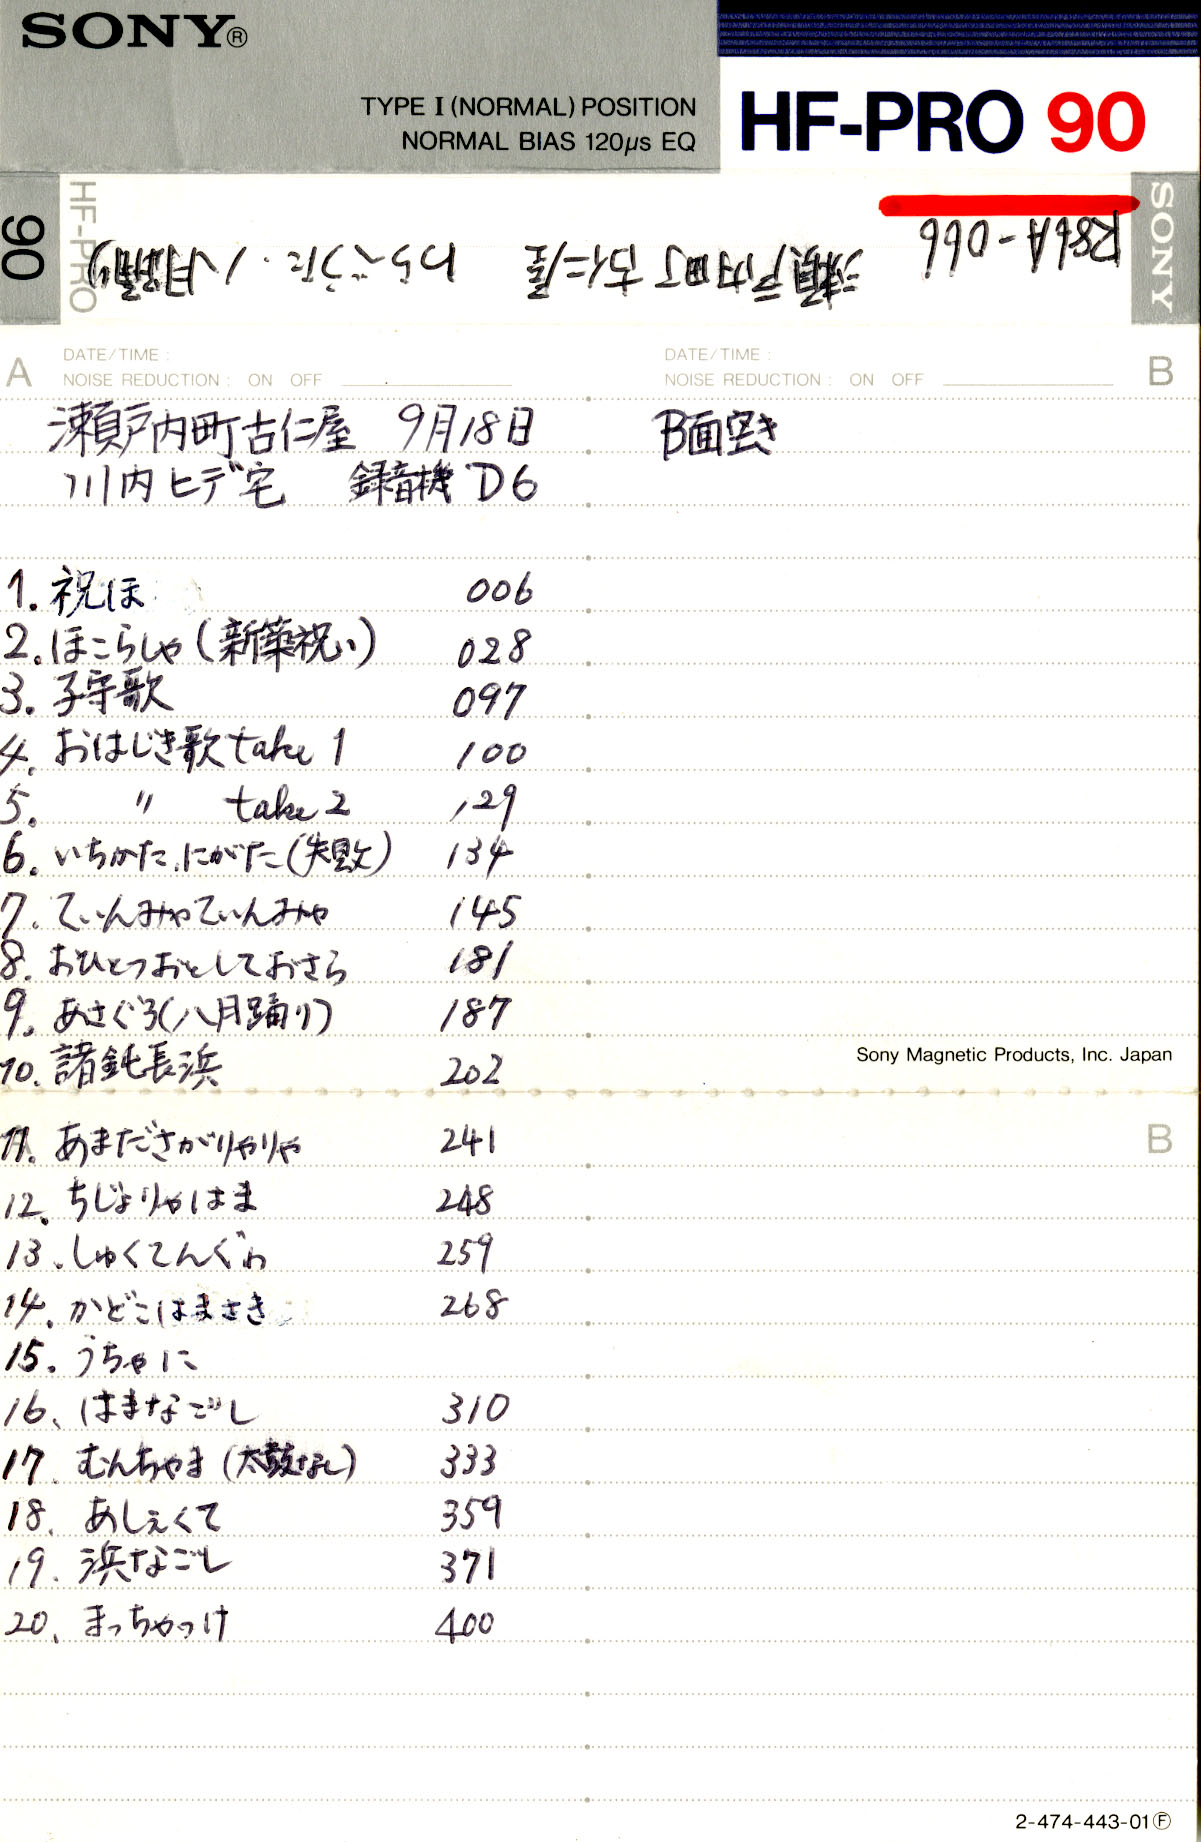 SONY®
TYPE I (NORMAL) POSITION
NORMAL BIAS 120µs EQ
HF-PRO 90
90
HF-PRO
SONY
R86A-066 瀬戸内町古仁屋 わらべうた・八月踊り
A DATE/TIME :
NOISE REDUCTION : ON OFF
DATE/TIME :
NOISE REDUCTION : ON OFF
B
瀬戸内町古仁屋 9月18日
川内ヒデ宅 録音機 D6
B面空き
1. 祝ほ 006
2. ほこらしゃ(新築祝い) 028
3. 子守歌 097
4. おはじき歌 take 1 100
5. 〃 take 2 129
6. いちかた、にがた(失敗) 134
7. てぃんみゃてぃんみゃ 145
8. おひとつおとしておさら 181
9. あさぐろ(八月踊り) 187
10. 諸鈍長浜 202
Sony Magnetic Products, Inc. Japan
11. あまださがりゃりゃ 241
B
12. ちじょりゃはま 248
13. しゅくてんぐゎ 259
14. かどこはまさき 268
15. うちゃに
16. はまなごし 310
17. むんちゃま(太鼓なし) 333
18. あしぇくて 359
19. 浜なごし 371
20. まっちゃっけ 400
2-474-443-01Ⓕ